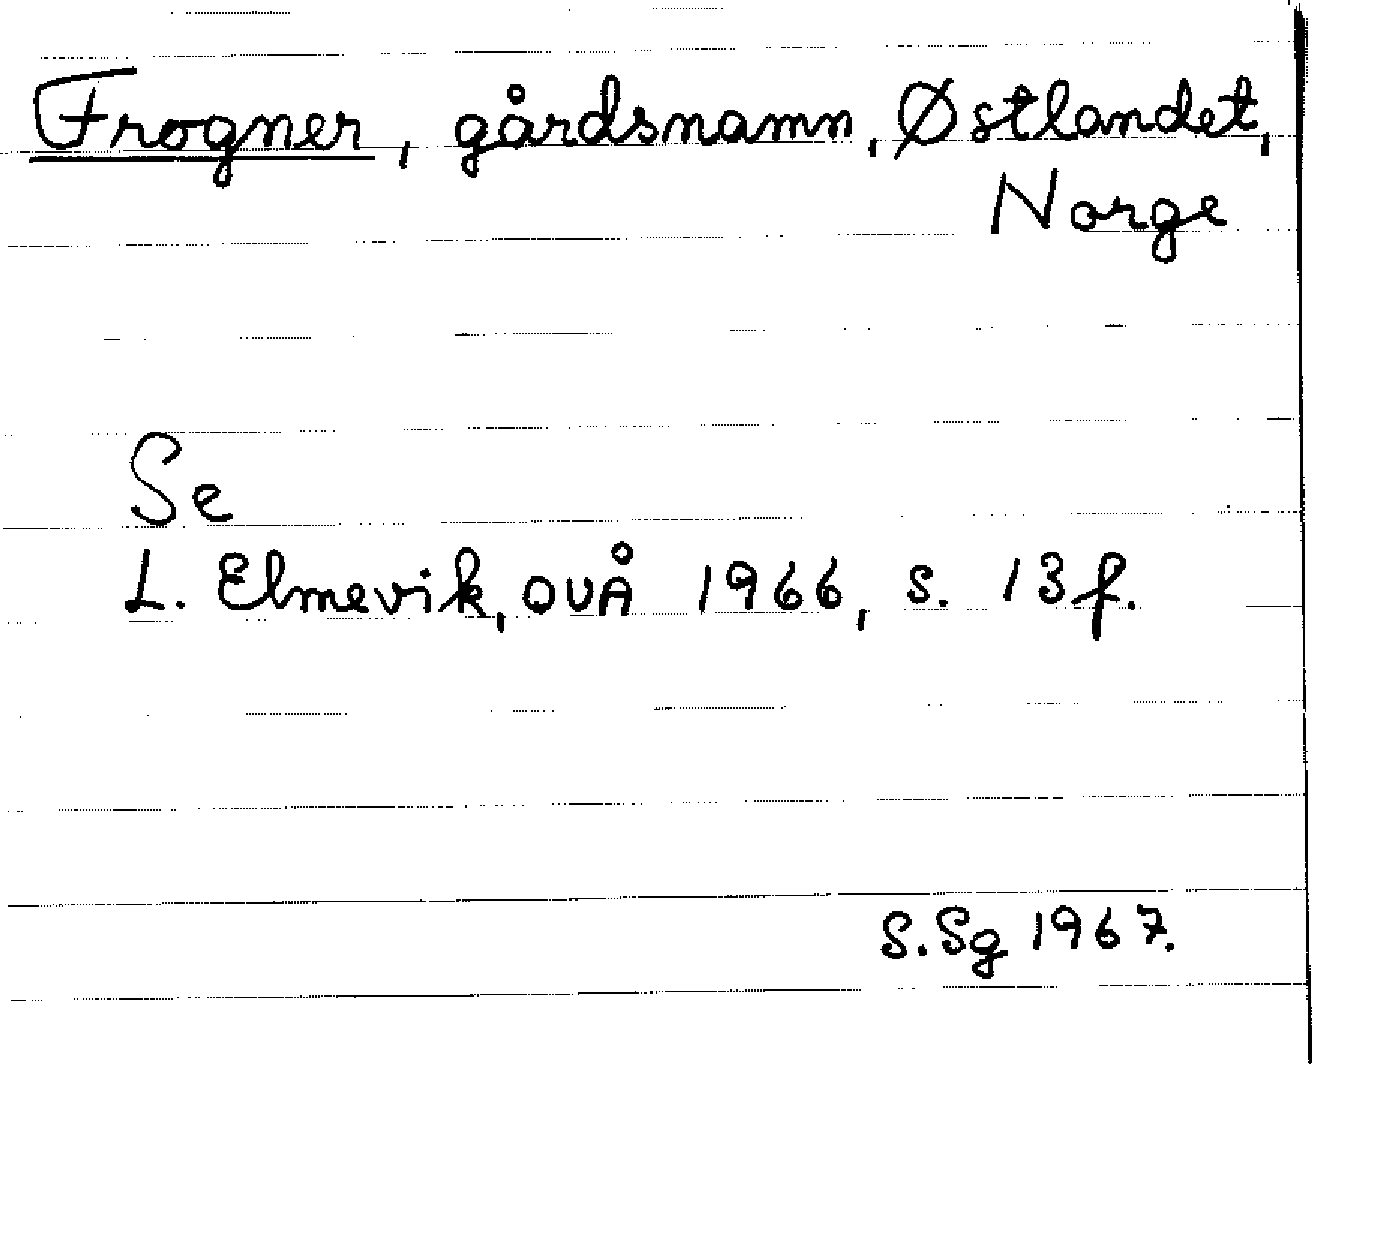 Frogner, gårdsnamn, Østlandet,
Norge
Se
L. Elmevik, OUÅ 1966, s. 13 f.
S. Sg 1967.